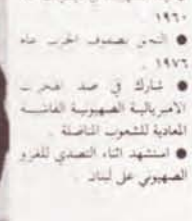 ١٩٦٠
● التحق بصفوف الحزب عام
١٩٧٦ .
● شارك في صد الهجمات
الامبريالية الصهيونية الفاشية
المعادية للشعوب المناضلة .
● استشهد اثناء التصدي للغزو
الصهيوني على لبنان .